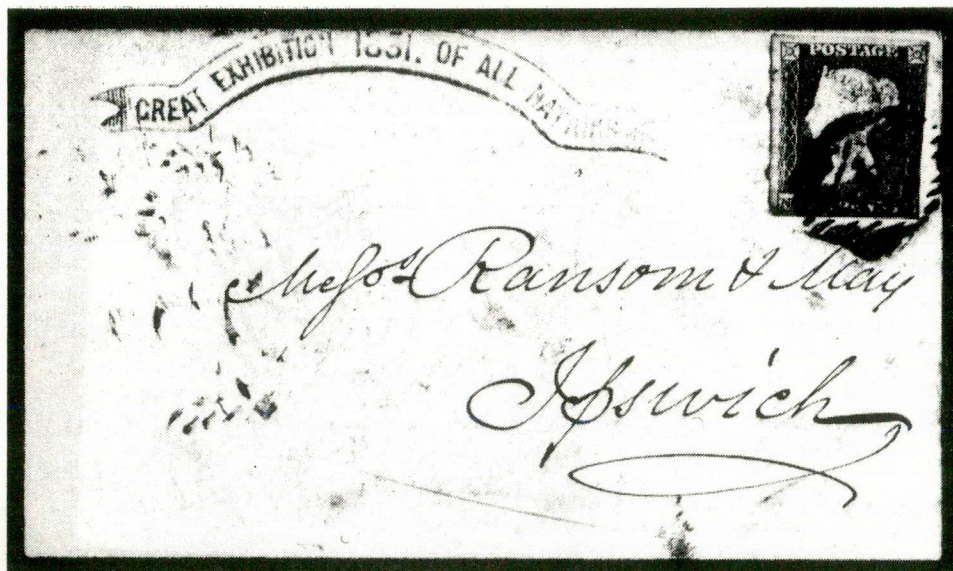 GREAT EXHIBITION 1851. OF ALL NATIONS
POSTAGE
Messrs Ransom & May
Ipswich